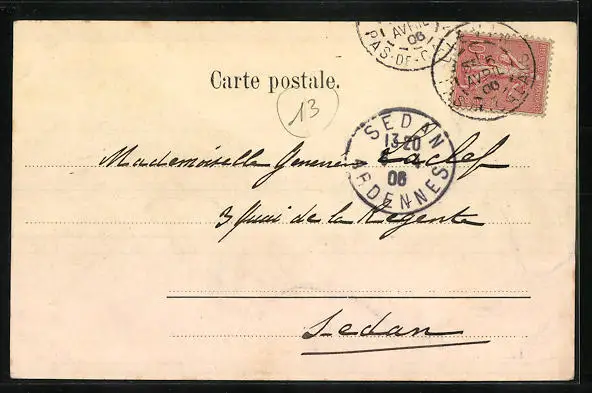 AVRIL
06
PAS-DE-C
AVRIL
06
Carte postale.
13
SEDAN
13 20
06
ARDENNES
Mademoiselle
3 Quai de la Régente
Sedan